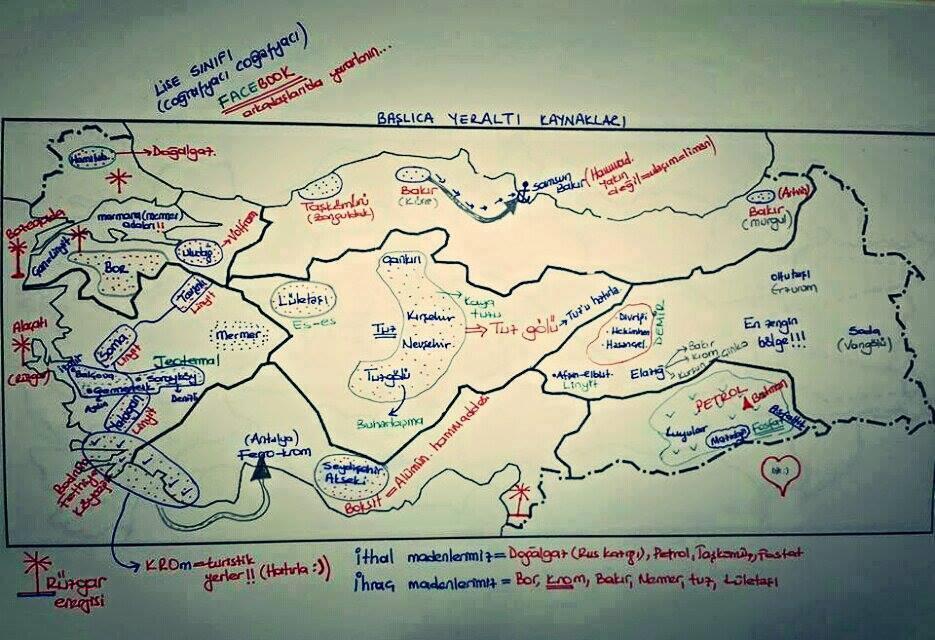 LİSE SINIFI
(Coğrafyacı coğrafyacı)
FACEBOOK
arkadaşlarıda yararlansın...
BAŞLICA YERALTI KAYNAKLARI
Hamitab.
Doğalgaz.
Bozcaada
marmara (mermer
adaları!!
Çan-Linyit
Bor
Uludağ
Volfram
Taşkömürü
(Zonguldak)
Bakır
(Küre)
Samsun
Bakır
(Hammad.
yakın
değil=ulaşım=liman)
(Artvin)
Bakır
(murgul)
Alaçatı
(Rüzgar)
Tavşanlı
Linyit
Soma
Linyit
Lületaşı
Es-es
Mermer
Jeotermal
Balçova
Germencik
Sarayköy
Aydın
Denizli
Yatağan
Linyit
Çankırı
Kaya
tuzu
Tuz
Kırşehir
Nevşehir
Tuz gölü
Tuz'u hatırla.
Tuzgölü
Buharlaşma
Divriği
Hekimhan
Hasançel.
DEMİR
Afşin-elbist.
Linyit
Elazığ
Bakır
Krom
Çinko
Kurşun
Oltutaşı
Erzurum
En zengin
bölge!!!
Soda
(Vangölü)
PETROL
Batman
kuyular
Mazıdağı
Fosfat
Asfaltit
(Antalya)
Ferro-krom
Seydişehir
Akseki
Boksit = Alümin. hammaddesi
Rüzgar
enerjisi
KROm=turistik
yerler!! (Hatırla:))
İthal madenlerimiz = Doğalgaz (Rus kazığı), Petrol, Taşkömür, Fosfat
İhraç madenlerimiz = Bor, krom, Bakır, Mermer, tuz, Lületaşı